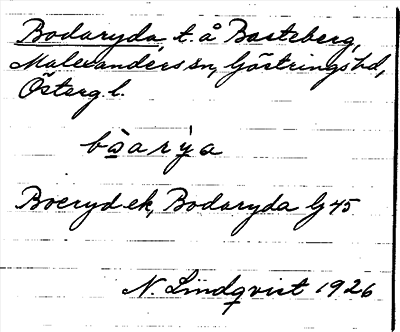 Bodaryda, t. å Basteberg,
Malexanders sn, Göstrings hd,
Österg. l.
bòarẙa
Boeryd ek, Bodaryda G 45
N. Lindqvist 1926